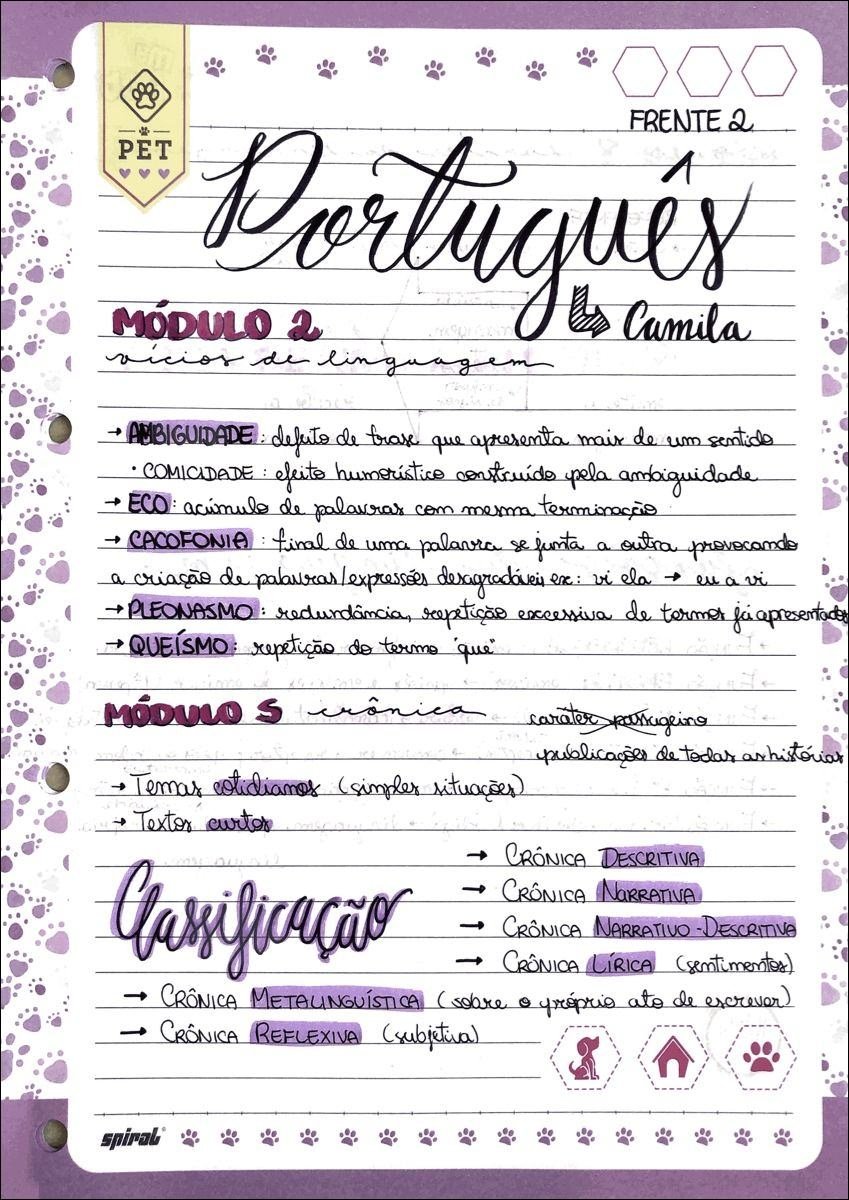 FRENTE 2
PET
Português
Camila
MÓDULO 2
vícios de linguagem
→ AMBIGUIDADE: defeito de frase que apresenta mais de um sentido
• COMICIDADE: efeito humorístico construído pela ambiguidade
→ ECO: acúmulo de palavras com mesma terminação
→ CACOFONIA: final de uma palavra se junta a outra provocando
a criação de palavras/expressões desagradáveis, ex: vi ela → eu a vi
→ PLEONASMO: redundância, repetição excessiva de termos já apresentados
→ QUEÍSMO: repetição do termo "que"
MÓDULO 5 crônica caráter passageiro
publicações de todas as histórias
→ Temas cotidianos (simples situações)
→ Textos curtos
Classificação
→ CRÔNICA DESCRITIVA
→ CRÔNICA NARRATIVA
→ CRÔNICA NARRATIVO-DESCRITIVA
→ CRÔNICA LÍRICA (sentimentos)
→ CRÔNICA METALINGUÍSTICA (sobre o próprio ato de escrever)
→ CRÔNICA REFLEXIVA (subjetiva)
spiral